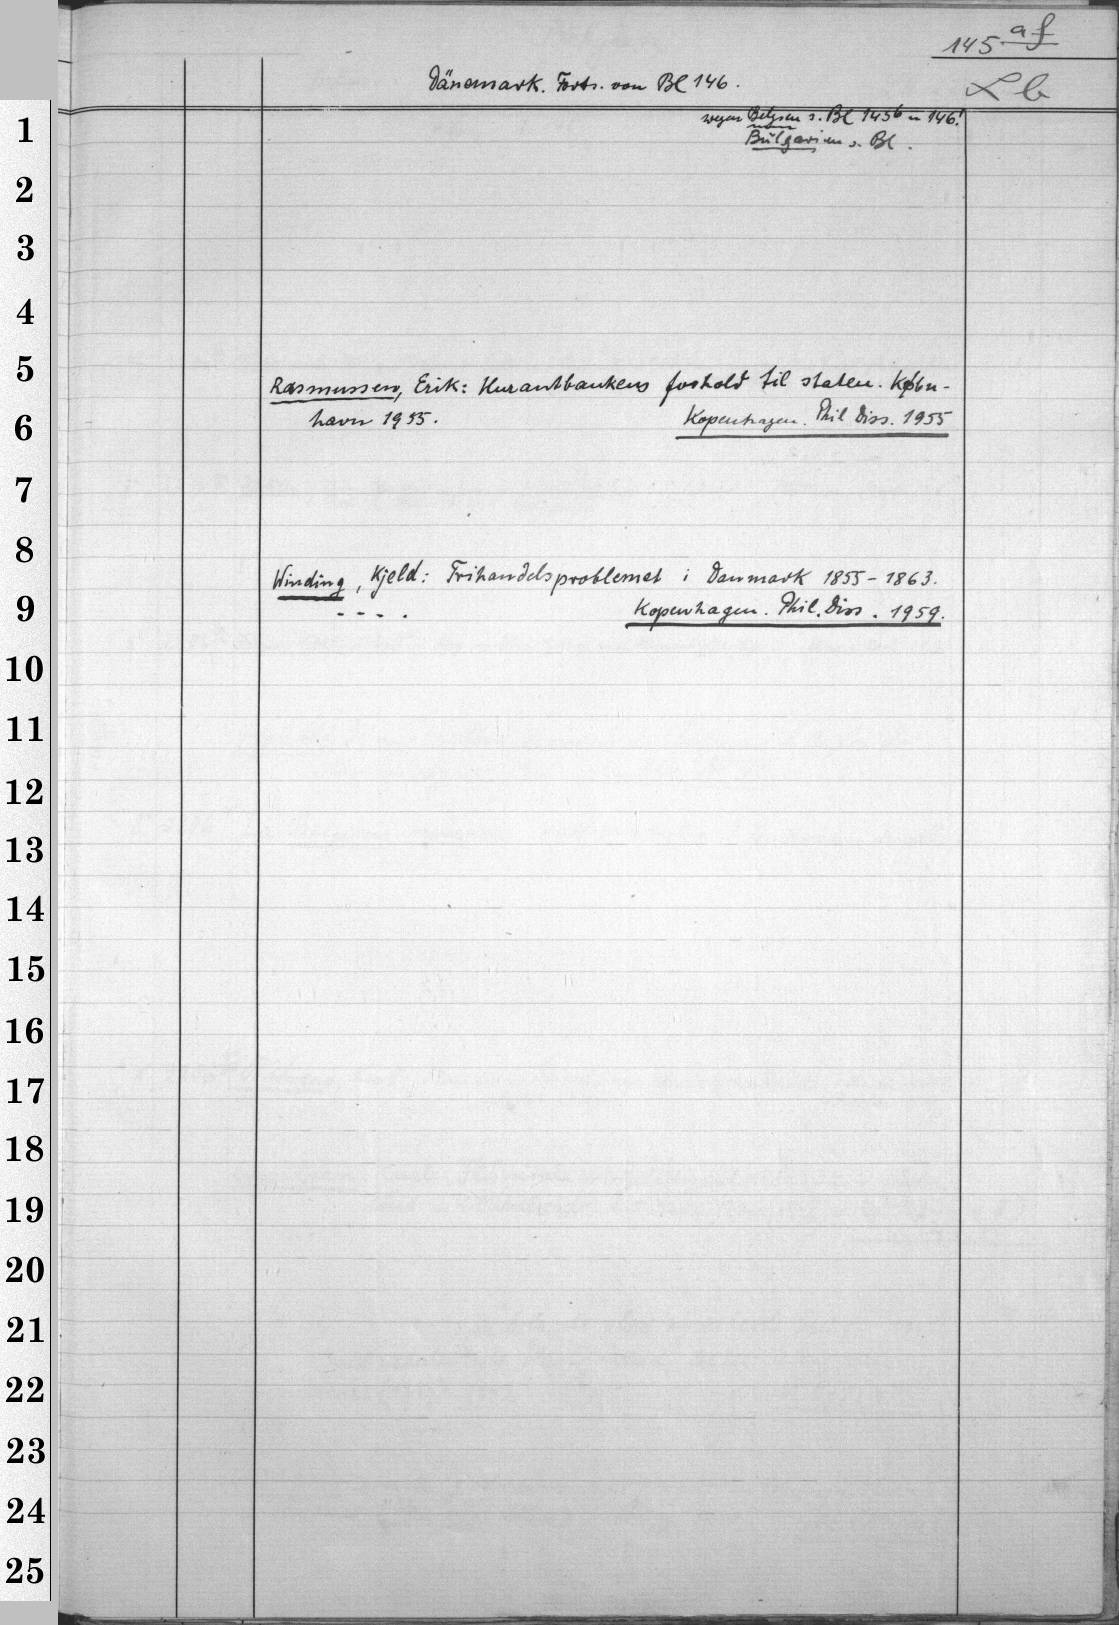 145 af
Lb
Dänemark. Forts. von Bl 146.
wegen Belgien s. Bl 145b u 146!
Bulgarien s. Bl .
1
2
3
4
5
Rasmussen, Erik: Kurantbankens forhold til staten. Købn-
6
havn 1955. Kopenhagen. Phil Diss. 1955
7
8
Winding, Kjeld: Frihandelsproblemet i Danmark 1855-1863.
9
- - - . Kopenhagen. Phil. Diss. 1959.
10
11
12
13
14
15
16
17
18
19
20
21
22
23
24
25